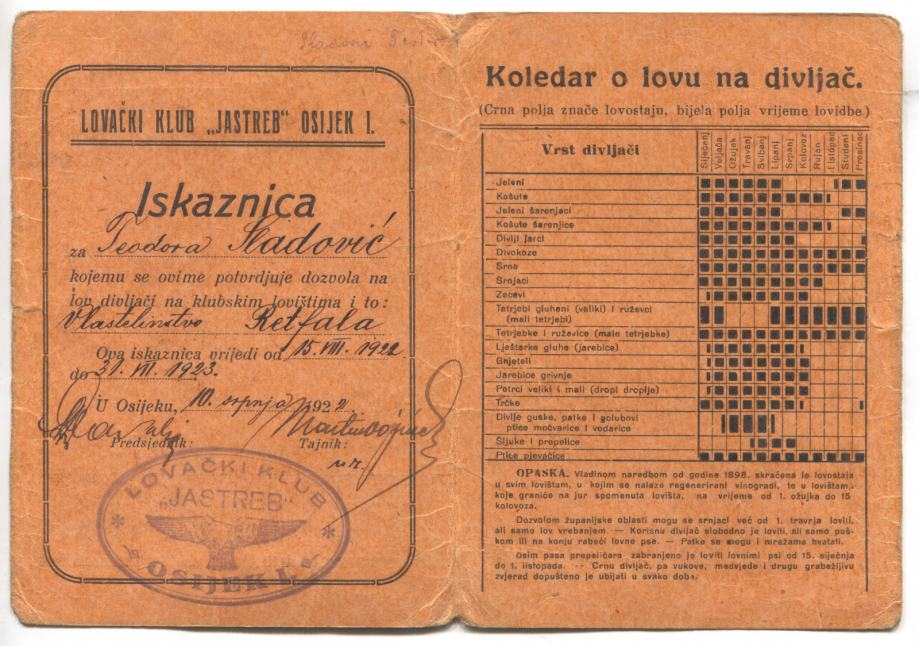 Sladović Teodor
LOVAČKI KLUB „JASTREB" OSIJEK I.
Iskaznica
za Teodora Sladović
kojemu se ovime potvrdjuje dozvola na
lov divljači na klubskim lovištima i to:
Vlastelinstvo Retfala
Ova iskaznica vrijedi od 15. VIII. 1922
do 31. VII. 1923.
U Osijeku, 10. srpnja 1922
Predsjednik: Tajnik:
LOVAČKI KLUB
„JASTREB"
OSIJEK I.
Koledar o lovu na divljač.
(Crna polja znače lovostaju, bijela polja vrijeme lovidbe)
Vrst divljači
Siječanj
Veljača
Ožujak
Travanj
Svibanj
Lipanj
Srpanj
Kolovoz
Rujan
Listopad
Studeni
Prosinac
Jeleni
Košute
Jeleni šarenjaci
Košute šarenjice
Divlji jarci
Divokoze
Srne
Srnjaci
Zecevi
Tetrjebi gluhani (veliki) i ruževci
(mali tetrjebi)
Tetrjebke i ruževice (male tetrjebke)
Lještarke gluhe (jarebice)
Gnjeteli
Jarebice grivnje
Potrci veliki i mali (dropi droplje)
Trčke
Divlje guske, patke i golubovi
ptice močvarice i vodarice
Šljuke i prepelice
Ptice pjevačice
OPASKA. Vladinom naredbom od godine 1898. skraćena je lovostaja
u svim lovištam, u kojim se nalaze regenerirani vinogradi, te u lovištam,
koje graniče na jur spomenuta lovišta, na vrijeme od 1. ožujka do 15
kolovoza.
Dozvolom županijske oblasti mogu se srnjaci već od 1. travnja loviti,
ali samo lov vrebanjem. — Korisnu divljač slobodno je loviti, ali samo puš-
kom ili na konju rabeći lovne pse. — Patke se mogu i mrežama hvatati.
Osim pasa prepeličara zabranjeno je loviti lovnimi psi od 15. siječnja
do 1. listopada. -- Crnu divljač, pa vukove, medvjede i drugu grabežljivu
zvjerad dopušteno je ubijati u svako doba.